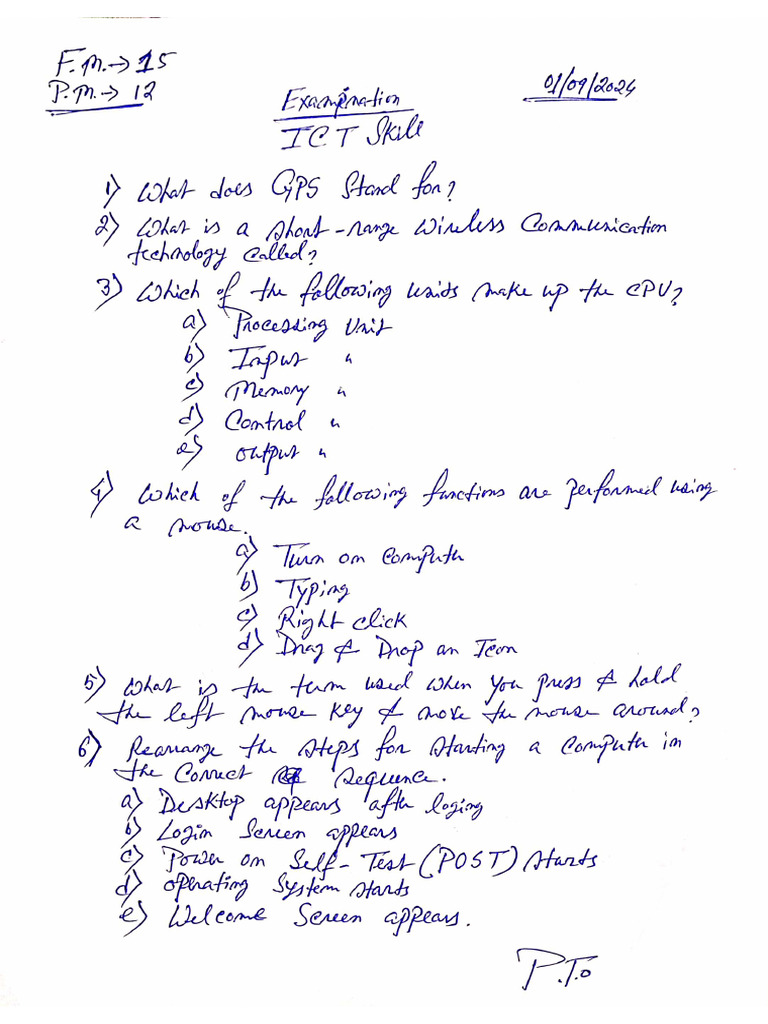 F.M.→ 15
P.M.→ 12
01/09/2024
Examination
ICT Skill
1) What does GPS Stand for?
2) What is a short-range wireless Communication
technology called?
3) Which of the following units make up the CPU?
a) Processing Unit
b) Input "
c) Memory "
d) Control "
e) output "
4) Which of the following functions are performed using
a mouse.
a) Turn on Computer
b) Typing
c) Right click
d) Drag & Drop an Icon
5) What is the term used when you press & hold
the left mouse key & move the mouse around?
6) Rearrange the steps for starting a Computer in
the Correct sequence.
a) Desktop appears after loging
b) Login Screen appears
c) Power on Self-Test (POST) starts
d) operating System starts
e) Welcome Screen appears.
P.T.o